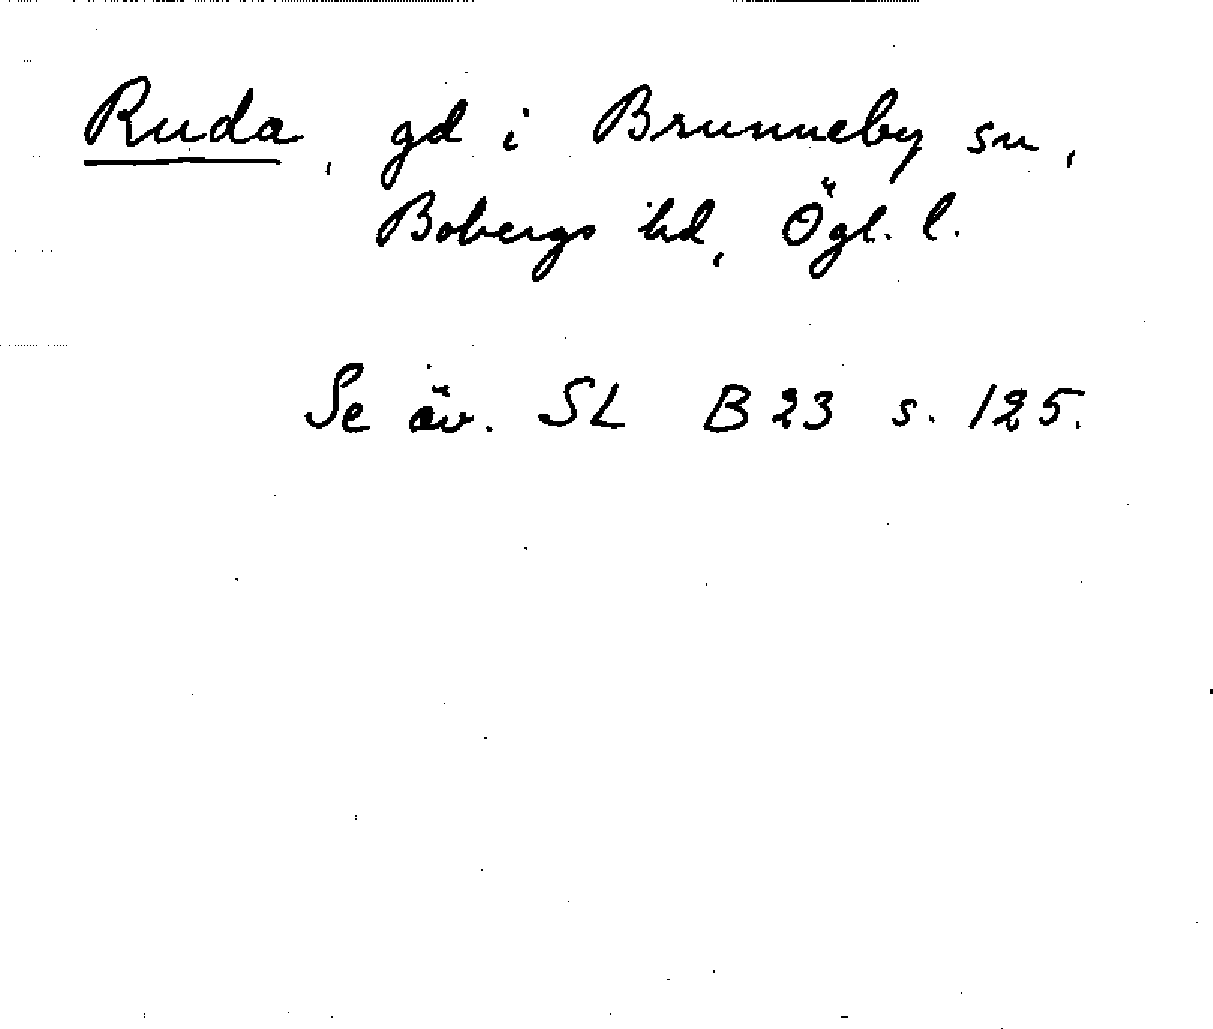 Ruda, gd i Brunneby sn,
Bobergs hd, Ögl. l.
Se äv. SL B 23 s. 125.